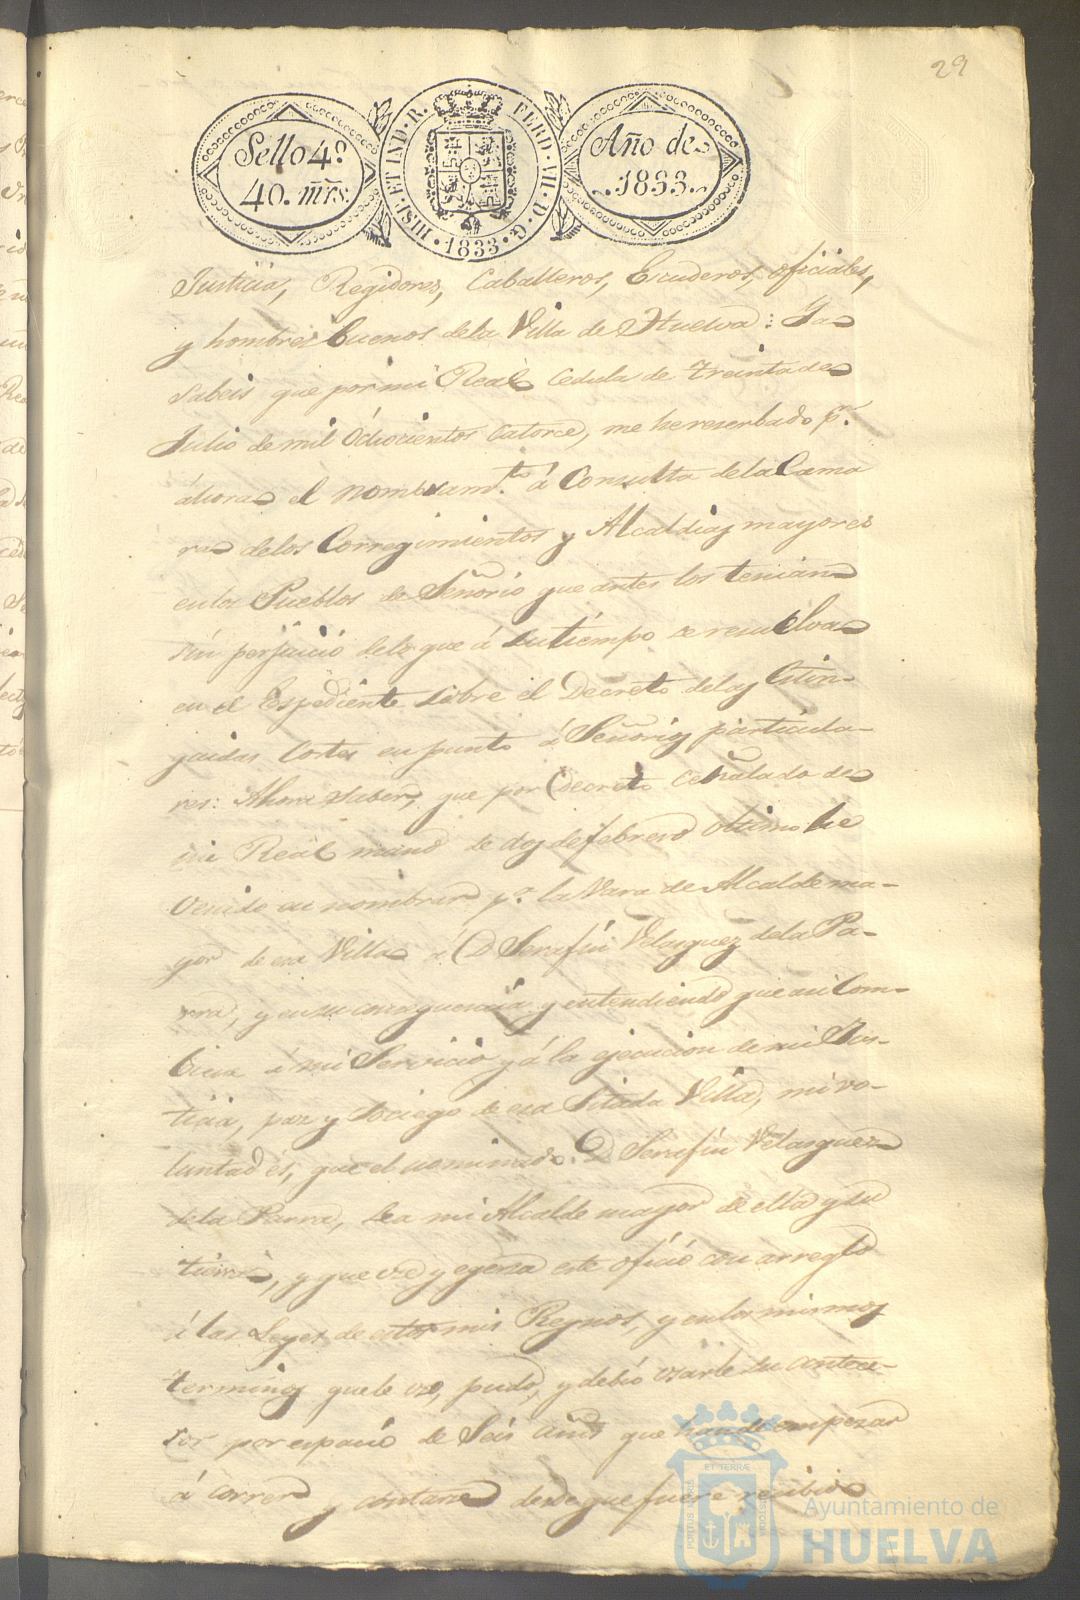 29
Sello 4º
40. mrs.
HISP. ET IND. R. FERD. VII. D. G.
1833
Año de
1833.
Justicia, Regidores, Caballeros, Escuderos, oficiales,
y hombres buenos de la Villa de Huelva: Ya
sabeis que por mi Real Cedula de treinta de
Julio de mil Ochocientos Catorce, me he reserbado pr.
ahora el nombram.to á Consulta de la Cama
ra de los Corregimientos y Alcaldias mayores
en los Pueblos de Señorio que antes los tenian
sin perjuicio de lo que á su tiempo se resuelva
en el Expediente sobre el Decreto de las Estin-
guidas Cortes en punto á Señorios particula-
res: Ahora sabed, que por Decreto señalado de
mi Real mano de dos de febrero ultimo he
venido en nombrar pª la Vara de Alcalde ma-
yor de esa Villa á D Serafin Velasquez de la Pa-
rra, y en su consequencia y entendiendo que asi com-
biene á mi Servicio y á la ejecucion de mi Jus-
ticia, paz y sociego de esa Citada Villa, mi vo-
luntad és, que el nominado D Serafin Velasquez
de la Parra, sea mi Alcalde mayor de ella y su
tierra, y que use y egersa este oficio con arreglo
á las Leyes de estos mis Reynos, y en los mismos
terminos que le usó, pudo, y debió usarle su antece-
sor por espacio de Seis años que han de empezar
á correr y contarse desde que fuere recibido
PORTUS MARIS ET TERRÆ CUSTODIA
Ayuntamiento de
HUELVA